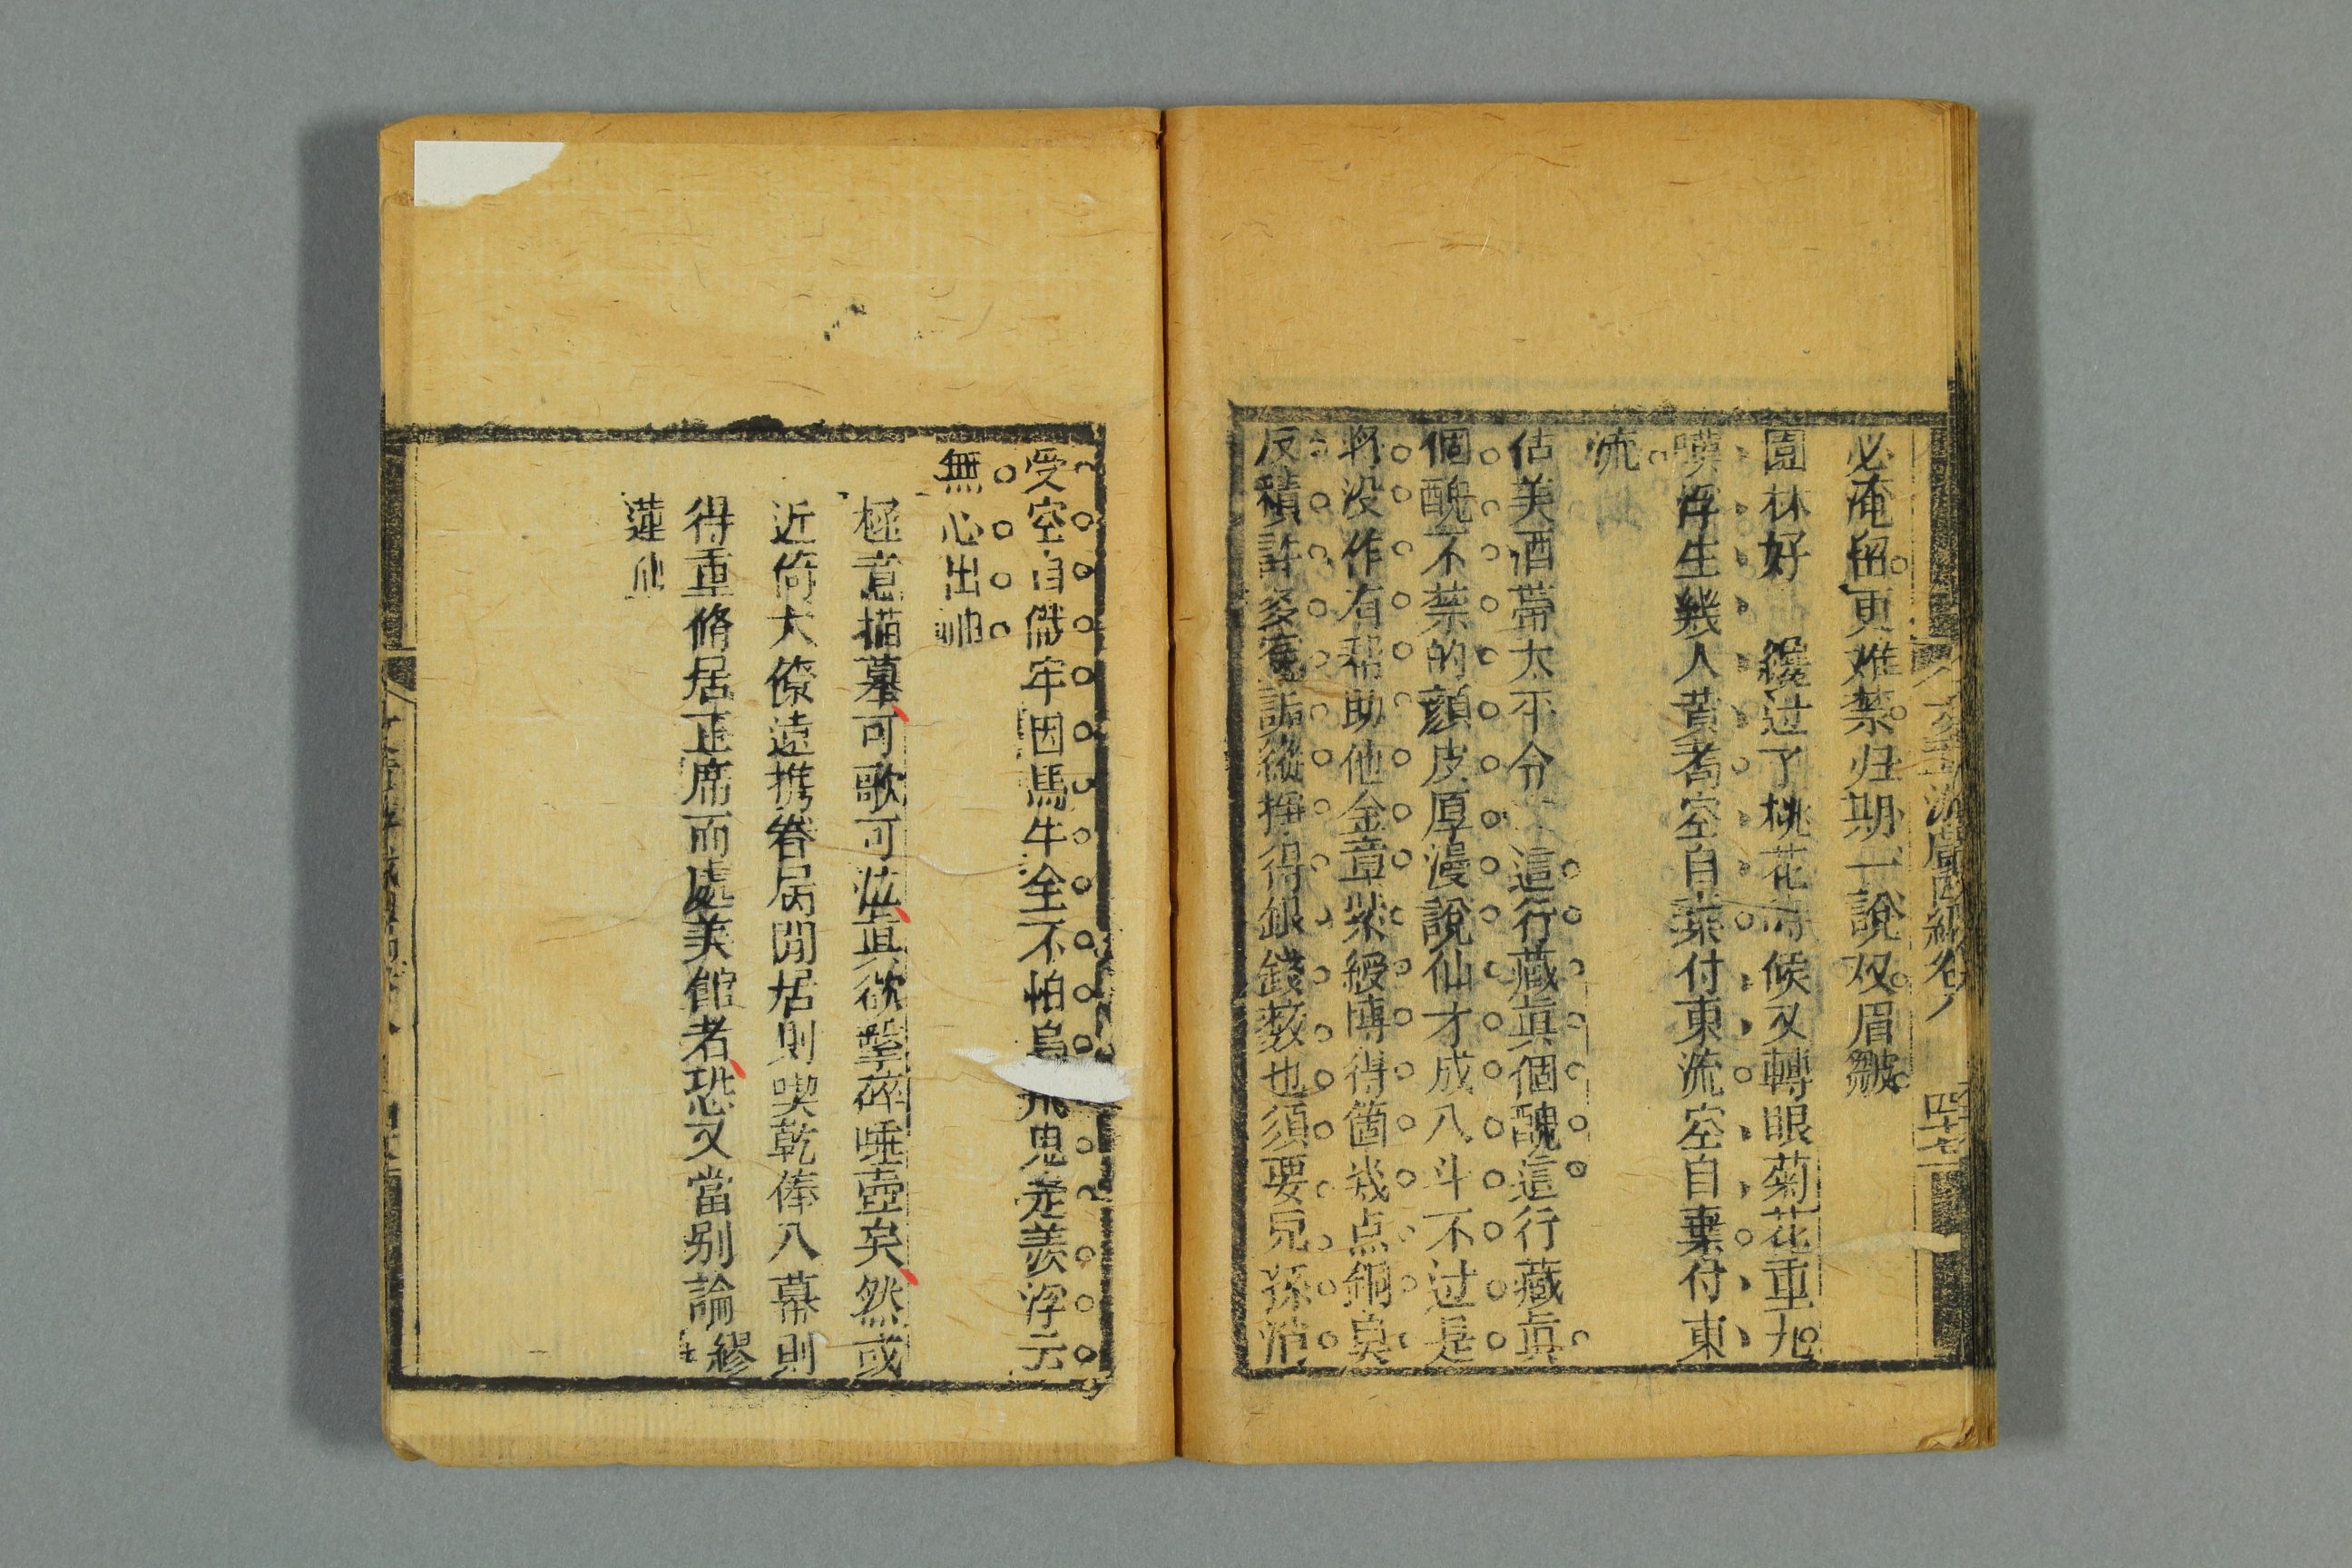 必淹留更难禁归期一說双眉皺
園林好 纔过了桃花時候又轉眼菊花重九
嘆浮生幾人黄耇空自棄付東流空自棄付東
流
估美酒帶太平令 這行藏真個醜這行藏真
個醜不禁的顔皮厚漫說仙才成八斗不过是
将没作有帮助他金章紫綬博得箇幾点銅臭
反積許多冤詬縱掙得銀錢数也須要兒孫消
受空自僽牢因馬牛全不怕烏飛兎走羨浮云
無心出岫
極意描摹可歌可泣真欲擊碎唾壺矣然或
近倚大僚遠携眷屬閒居則喫乾俸入幕則
得重脩居正席而處美館者恐又當别論繆
蓮仙